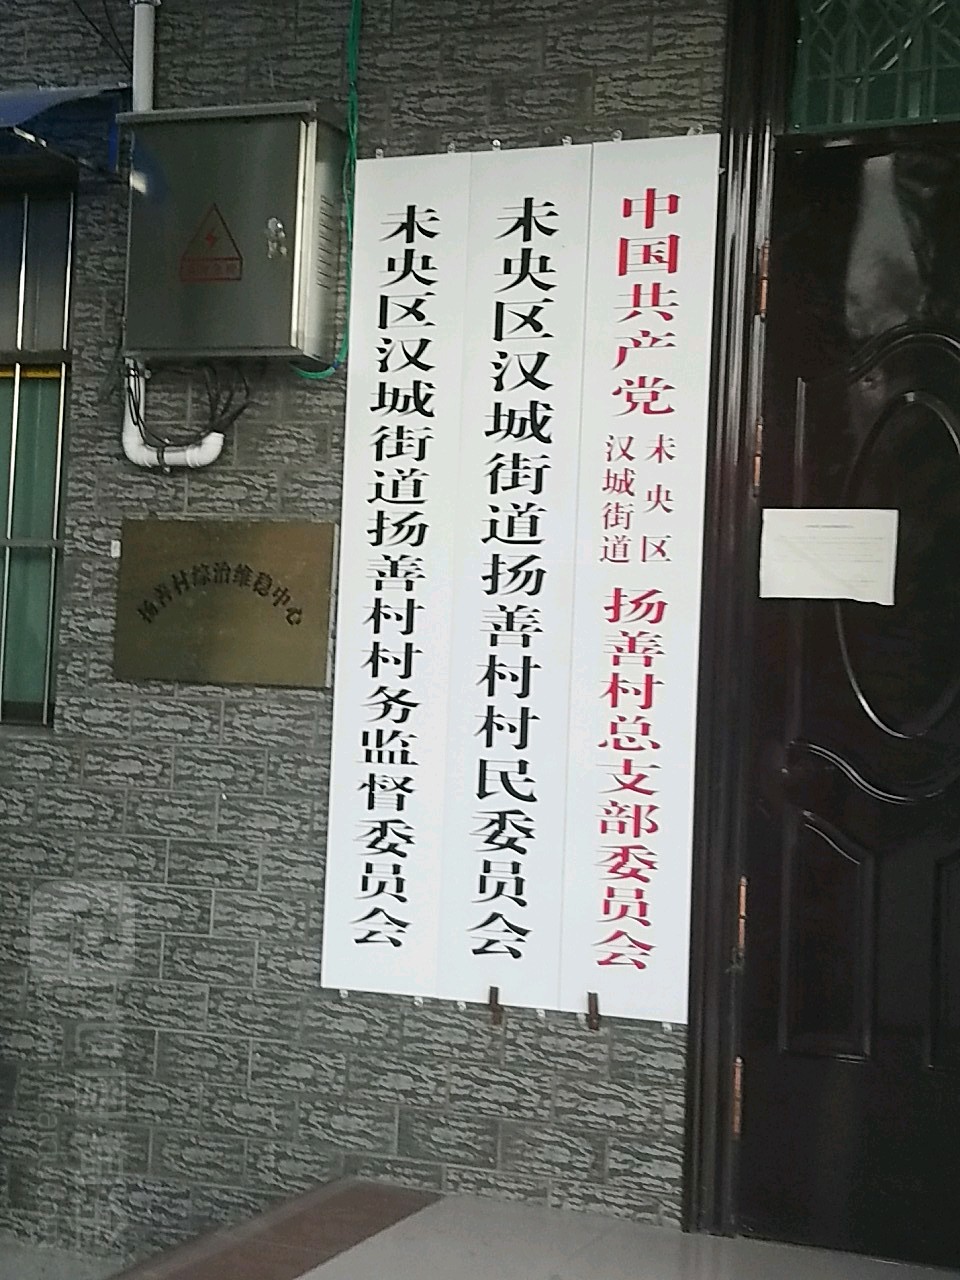 中国共产党
未央区
汉城街道
扬善村总支部委员会
未央区汉城街道扬善村村民委员会
未央区汉城街道扬善村村务监督委员会
扬善村综治维稳中心